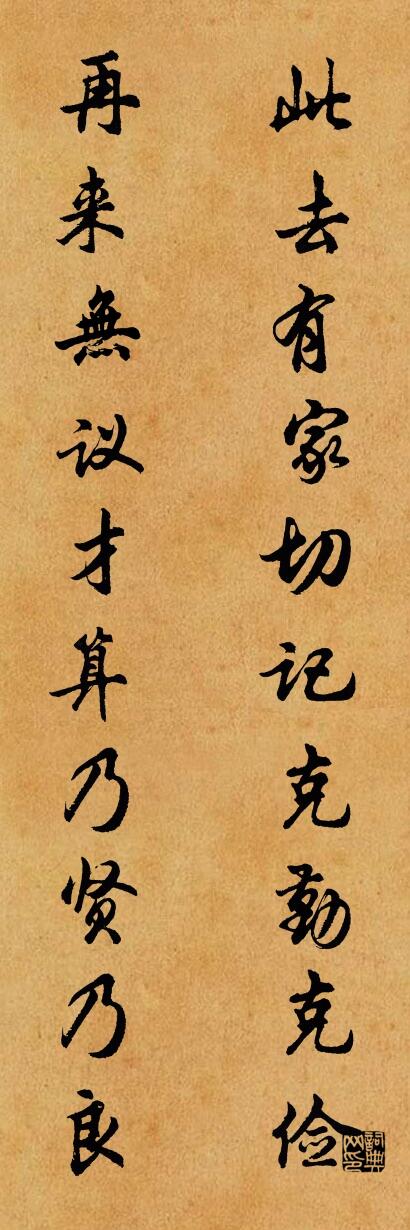 此去有家切记克勤克俭
再来無议才算乃贤乃良
詞典网印